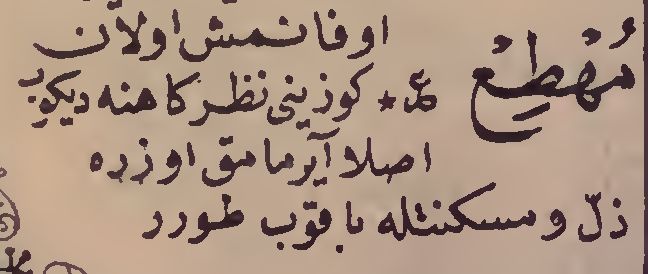 اوفانمش اولان
مُهْطِعْ عم * كوزینی نظركاهنه دیكوب
اصلا آیرمامق اوزره
ذلّ و مسكنتله باقوب طورر